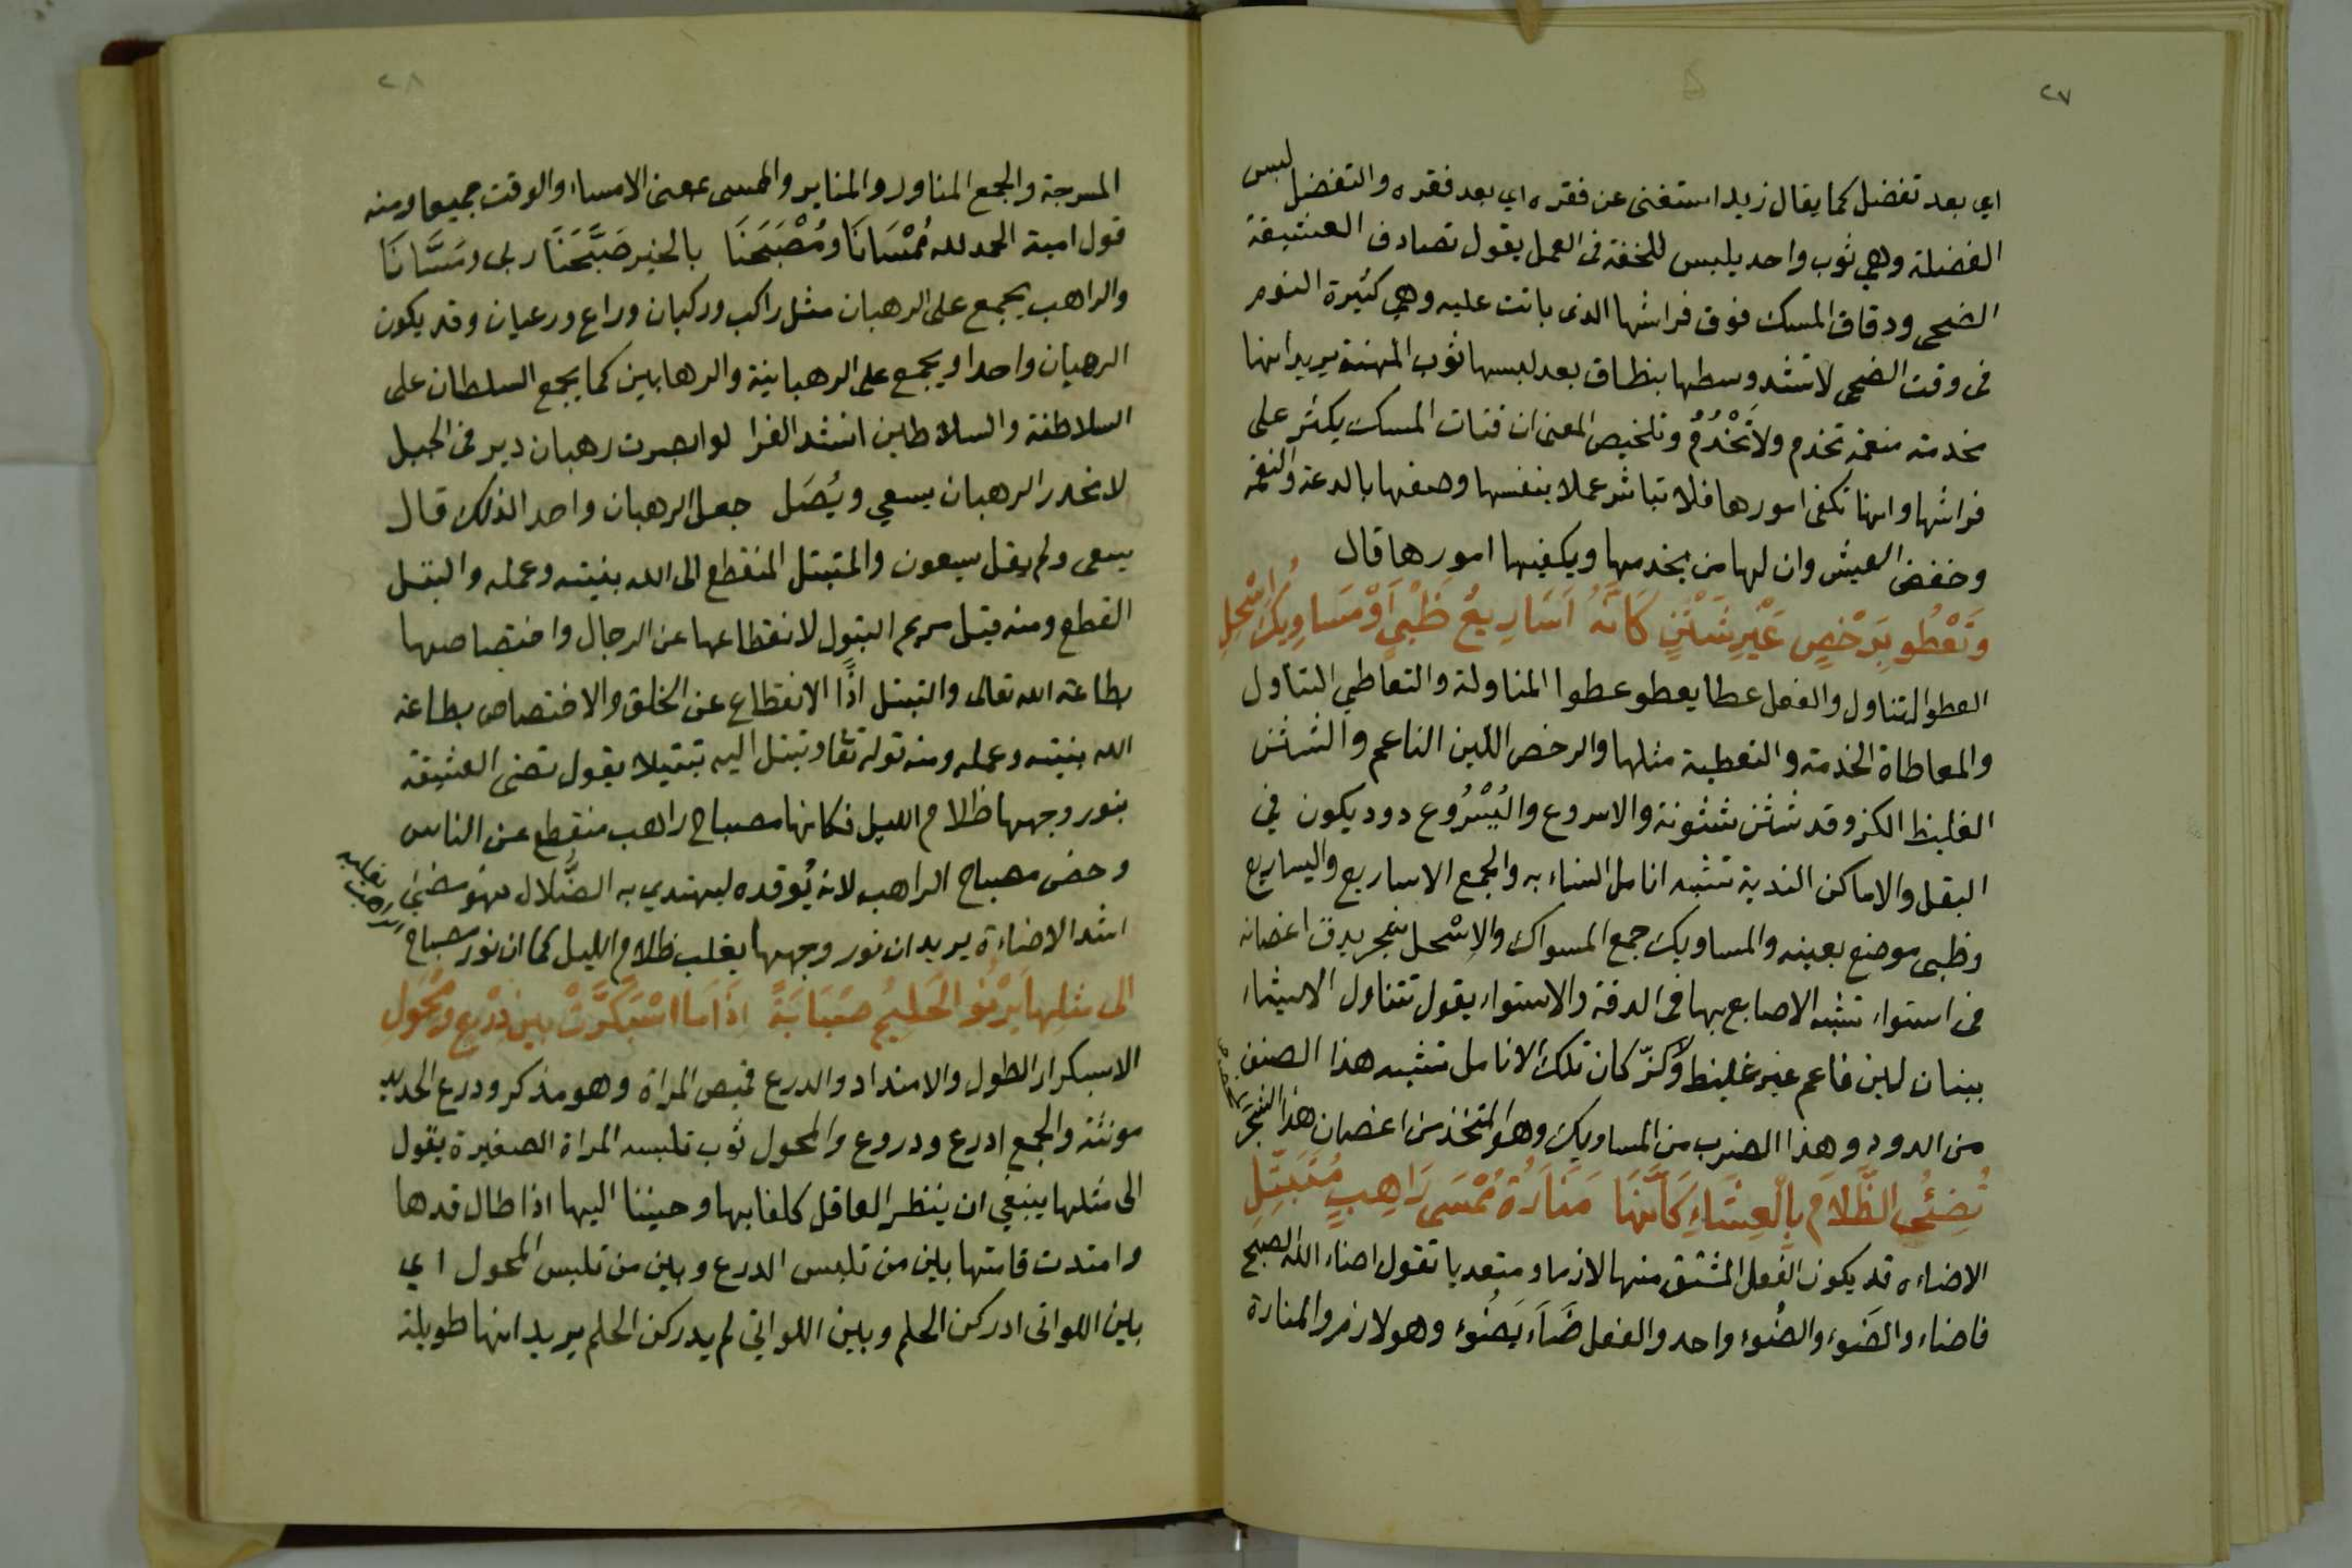 ٢٧
اي بعد تفضل كما يقال زيد استغنى عن فقره اي بعد فقره والتفضل لبس
الفضلة وهي ثوب واحد يلبس للخفة فى العمل يقول تصادف العشيقة
الضحى ودقاق المسك فوق فراشها الذى باتت عليه وهي كثيرة النوم
فى وقت الضحى لا تشد وسطها بنطاق بعد لبسها ثوب المهنة يريد انها
مخدمة منعمة تخدم ولا تَخْدُمُ وتلخيص المعنى ان فتات المسك يكثر على
فراشها وانها تكفى امورها فلا تباشر عملا بنفسها وصفها بالدعة والنعمة
وخفض العيش وان لها من يخدمها ويكفيها امورها قال
وَتَعْطُو بِرَخْصٍ غَيْرِ شَثْنٍ كَانَّهُ اَسَارِيعُ ظَبْيٍ اَوْ مَسَاوِيكُ اِسْحِلِ
العطو التناول والفعل عطا يعطو عطوا المناولة والتعاطي التناول
والمعاطاة الخدمة والتعطية مثلها والرخص اللين الناعم والشثن
الغليظ الكز وقد شثن شثونة والاسروع واليُسْرُوع دود يكون في
البقل والاماكن الندية تشبه انامل النساء به والجمع الاساريع واليساريع
وظبى موضع بعينه والمساويك جمع المسواك والاِسْحل شجر يدق اغصانه
فى استواء تشبه الاصابع بها فى الدقة والاستواء يقول تتناول الاشياء
ببنان لين ناعم غير غليظ ولا كزّ كان تلك الانامل تشبه هذا الصنف
من الدود وهذا الضرب من المساويك وهو المتخذ من اغصان هذا الشجر
تُضِئُ الظَّلاَمَ بِالْعِشَاءِ كَاَنَّهَا مَنَارَةُ مُمْسَى رَاهِبٍ مُتَبَتِّلِ
الاضاءه قد يكون الفعل المشتق منها لازما ومتعديا تقول اضاء الله الصبح
فاضاء والضَوء والضُوء واحد والفعل ضَاءَ يَضُوءُ وهو لازم والمنارة
٢٨
المسرجة والجمع المناور والمنابر والممسى بمعنى الامساء والوقت جميعا ومنه
قول امية الحمد لله مُمْسَانَا ومُصْبَحَنَا بالخير صَبَّحَنَا ربى ومَسَّانَا
والراهب يجمع على الرهبان مثل راكب وركبان وراع ورعيان وقد يكون
الرهبان واحدا ويجمع على الرهبانية والرهابين كما يجمع السلطان على
السلاطنة والسلاطين انشد الفرا لو ابصرت رهبان دير فى الجبل
لانحدر الرهبان يسعي ويُصَل جعل الرهبان واحدا لذلك قال
يسعى ولم يقل يسعون والمتبتل المنقطع الى الله بنيته وعمله والبتل
القطع ومنه قيل مريم البتول لانقطاعها عن الرجال واختصاصها
بطاعة الله تعالى والتبتل اذًا الانقطاع عن الخلق والاختصاص بطاعة
الله بنيته وعمله ومنه قوله تعا وتبتل اليه تبتيلا يقول تضئ العشيقة
بنور وجهها ظلام الليل فكانها مصباح راهب منقطع عن الناس
وخص مصباح الراهب لانه يُوقده ليهتدي به الضُّلال فهو يضئ
اشد الاضاءة يريد ان نور وجهها يغلب ظلام الليل كما ان نور مصباح
الراهب يغلبه
الى مثلها يَرْنُو الحَلِيمُ صَبَابَةً اذَا مَا اسْبَكَرَّتْ بين دِرْعٍ ومِجْوَلِ
الاسبكرار الطول والامتداد والدرع قميص المراة وهو مذكر ودرع الحديد
مونثة والجمع ادرع ودروع والمجول ثوب تلبسه المراة الصغيرة يقول
الى مثلها ينبغي ان ينظر العاقل كلفا بها وحنينا اليها اذا طال قدها
وامتدت قامتها بين من تلبس الدرع وبين من تلبس المجول اي
بين اللواتى ادركن الحلم وبين اللواتي لم يدركن الحلم يريد انها طويلة